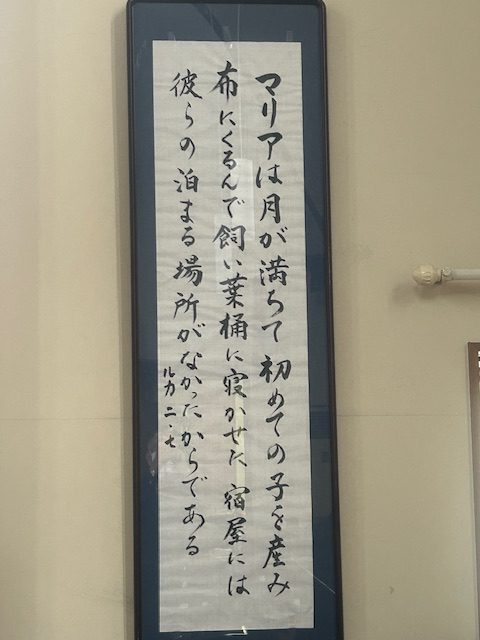 マリアは月が満ちて初めての子を産み
布にくるんで飼い葉桶に寝かせた宿屋には
彼らの泊まる場所がなかったからである
ルカ二・七